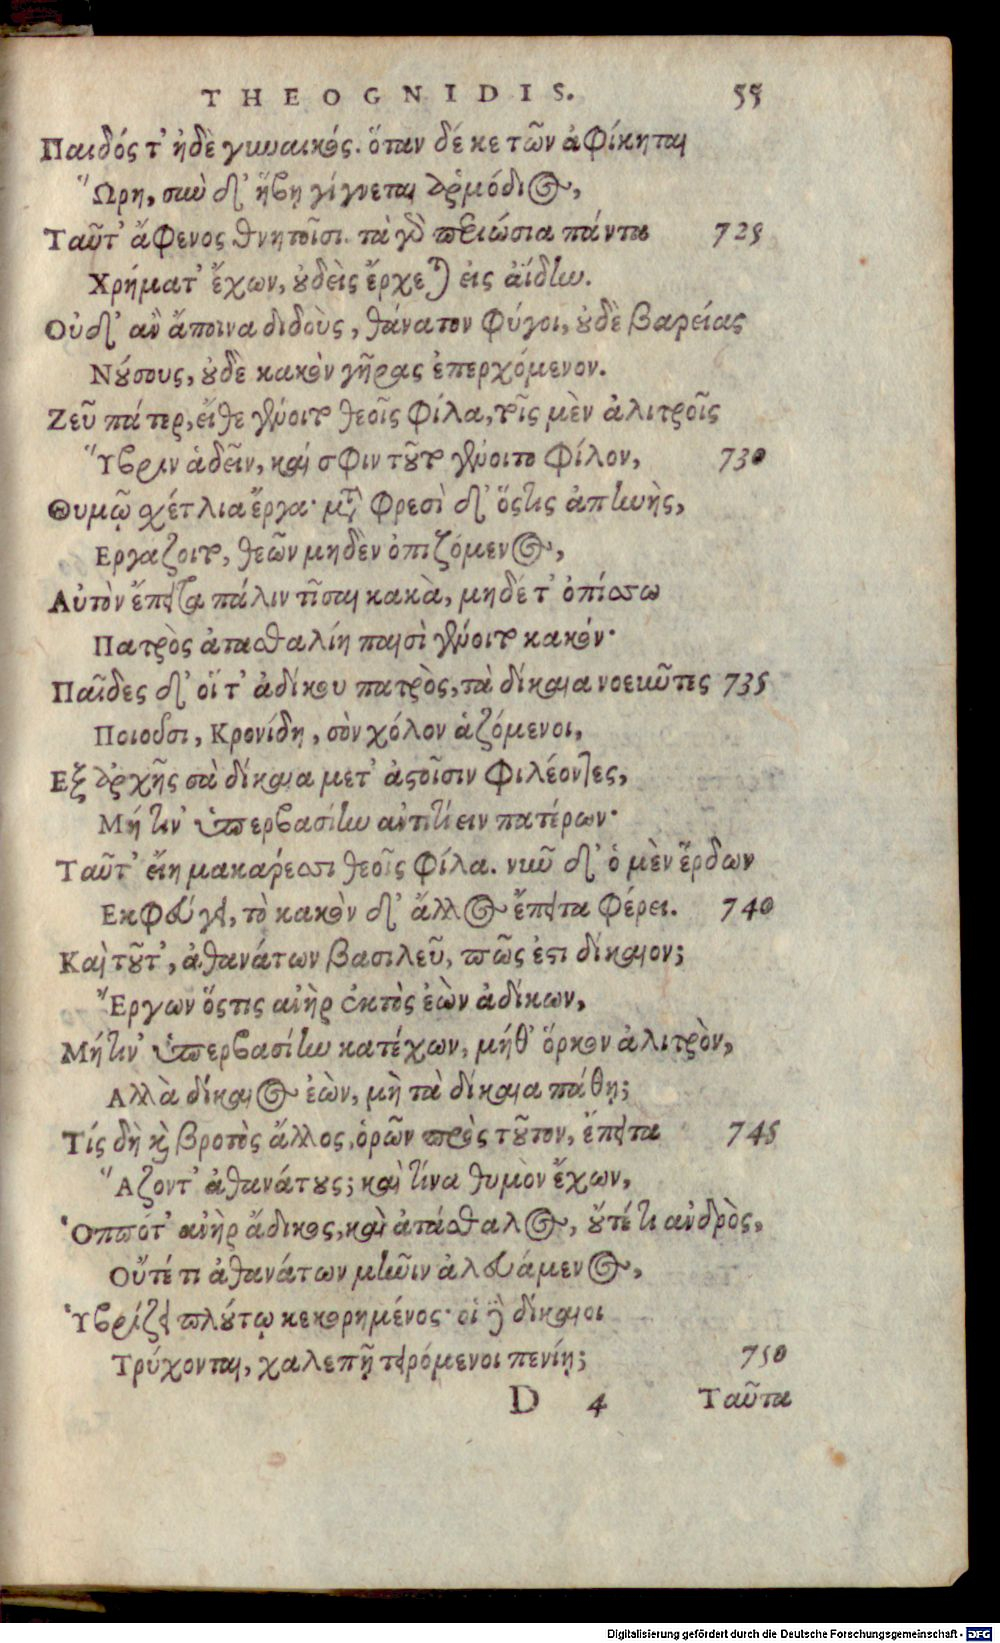 THEOGNIDIS. 55
Παιδός τ' ἠδὲ γυναικός. ὅταν δέ κε τῶν ἀφίκηται
Ὥρη, σὺν δ' ἥβη γίγνεται ἁρμόδιος,
Ταῦτ' ἄφενος θνητοῖσι. τὰ γὰρ περιώσια πάντα 725
Χρήματ' ἔχων, οὐδεὶς ἔρχεται εἰς ἀΐδην.
Οὐδ' ἂν ἄποινα διδοὺς, θάνατον φύγοι, οὐδὲ βαρείας
Νούσους, οὐδὲ κακὸν γῆρας ἐπερχόμενον.
Ζεῦ πάτερ, εἴθε γένοιτο θεοῖς φίλα, τοῖς μὲν ἀλιτροῖς
Ὕβριν ἁδεῖν, καὶ σφιν τοῦτο γένοιτο φίλον, 730
Θυμῷ σχέτλια ἔργα· μετὰ φρεσὶ δ' ὅςτις ἀπηνὴς,
Εργαζοιτο, θεῶν μηδὲν ὀπιζόμενος,
Αὐτὸν ἔπειτα πάλιν τῖσαι κακὰ, μηδέ τ' ὀπίσσω
Πατρὸς ἀτασθαλίη παισὶ γένοιτο κακόν·
Παῖδες δ' οἵ τ' ἀδίκου πατρὸς, τὰ δίκαια νοεῦντες 735
Ποιοῦσι, Κρονίδη, σὸν χόλον ἁζόμενοι,
Εξ ἀρχῆς σὰ δίκαια μετ' ἀστοῖσιν φιλέοντες,
Μή τιν' ὑπερβασίην ἀντιτίειν πατέρων·
Ταῦτ' εἴη μακάρεσσι θεοῖς φίλα. νῦν δ' ὁ μὲν ἔρδων
Εκφεύγει, τὸ κακὸν δ' ἄλλος ἔπειτα φέρει. 740
Καὶ τοῦτ', ἀθανάτων βασιλεῦ, πῶς ἐστι δίκαιον;
Ἔργων ὅστις ἀνὴρ ἐκτὸς ἐὼν ἀδίκων,
Μή τιν' ὑπερβασίην κατέχων, μήθ' ὅρκον ἀλιτρὸν,
Αλλὰ δίκαιος ἐὼν, μὴ τὰ δίκαια πάθῃ;
Τίς δὴ καὶ βροτὸς ἄλλος, ὁρῶν πρὸς τοῦτον, ἔπειτα 745
Ἅζοιτ' ἀθανάτους; καὶ τίνα θυμὸν ἔχων,
Ὁππότ' ἀνὴρ ἄδικος, καὶ ἀτάσθαλος, οὔτέ τι ἀνδρὸς,
Οὔτέ τι ἀθανάτων μῆνιν ἀλευάμενος,
Ὑβρίζει πλούτῳ κεκορημένος· οἱ δὲ δίκαιοι
Τρύχονται, χαλεπῇ τειρόμενοι πενίῃ; 750
D 4 Ταῦτα
Digitalisierung gefördert durch die Deutsche Forschungsgemeinschaft - DFG